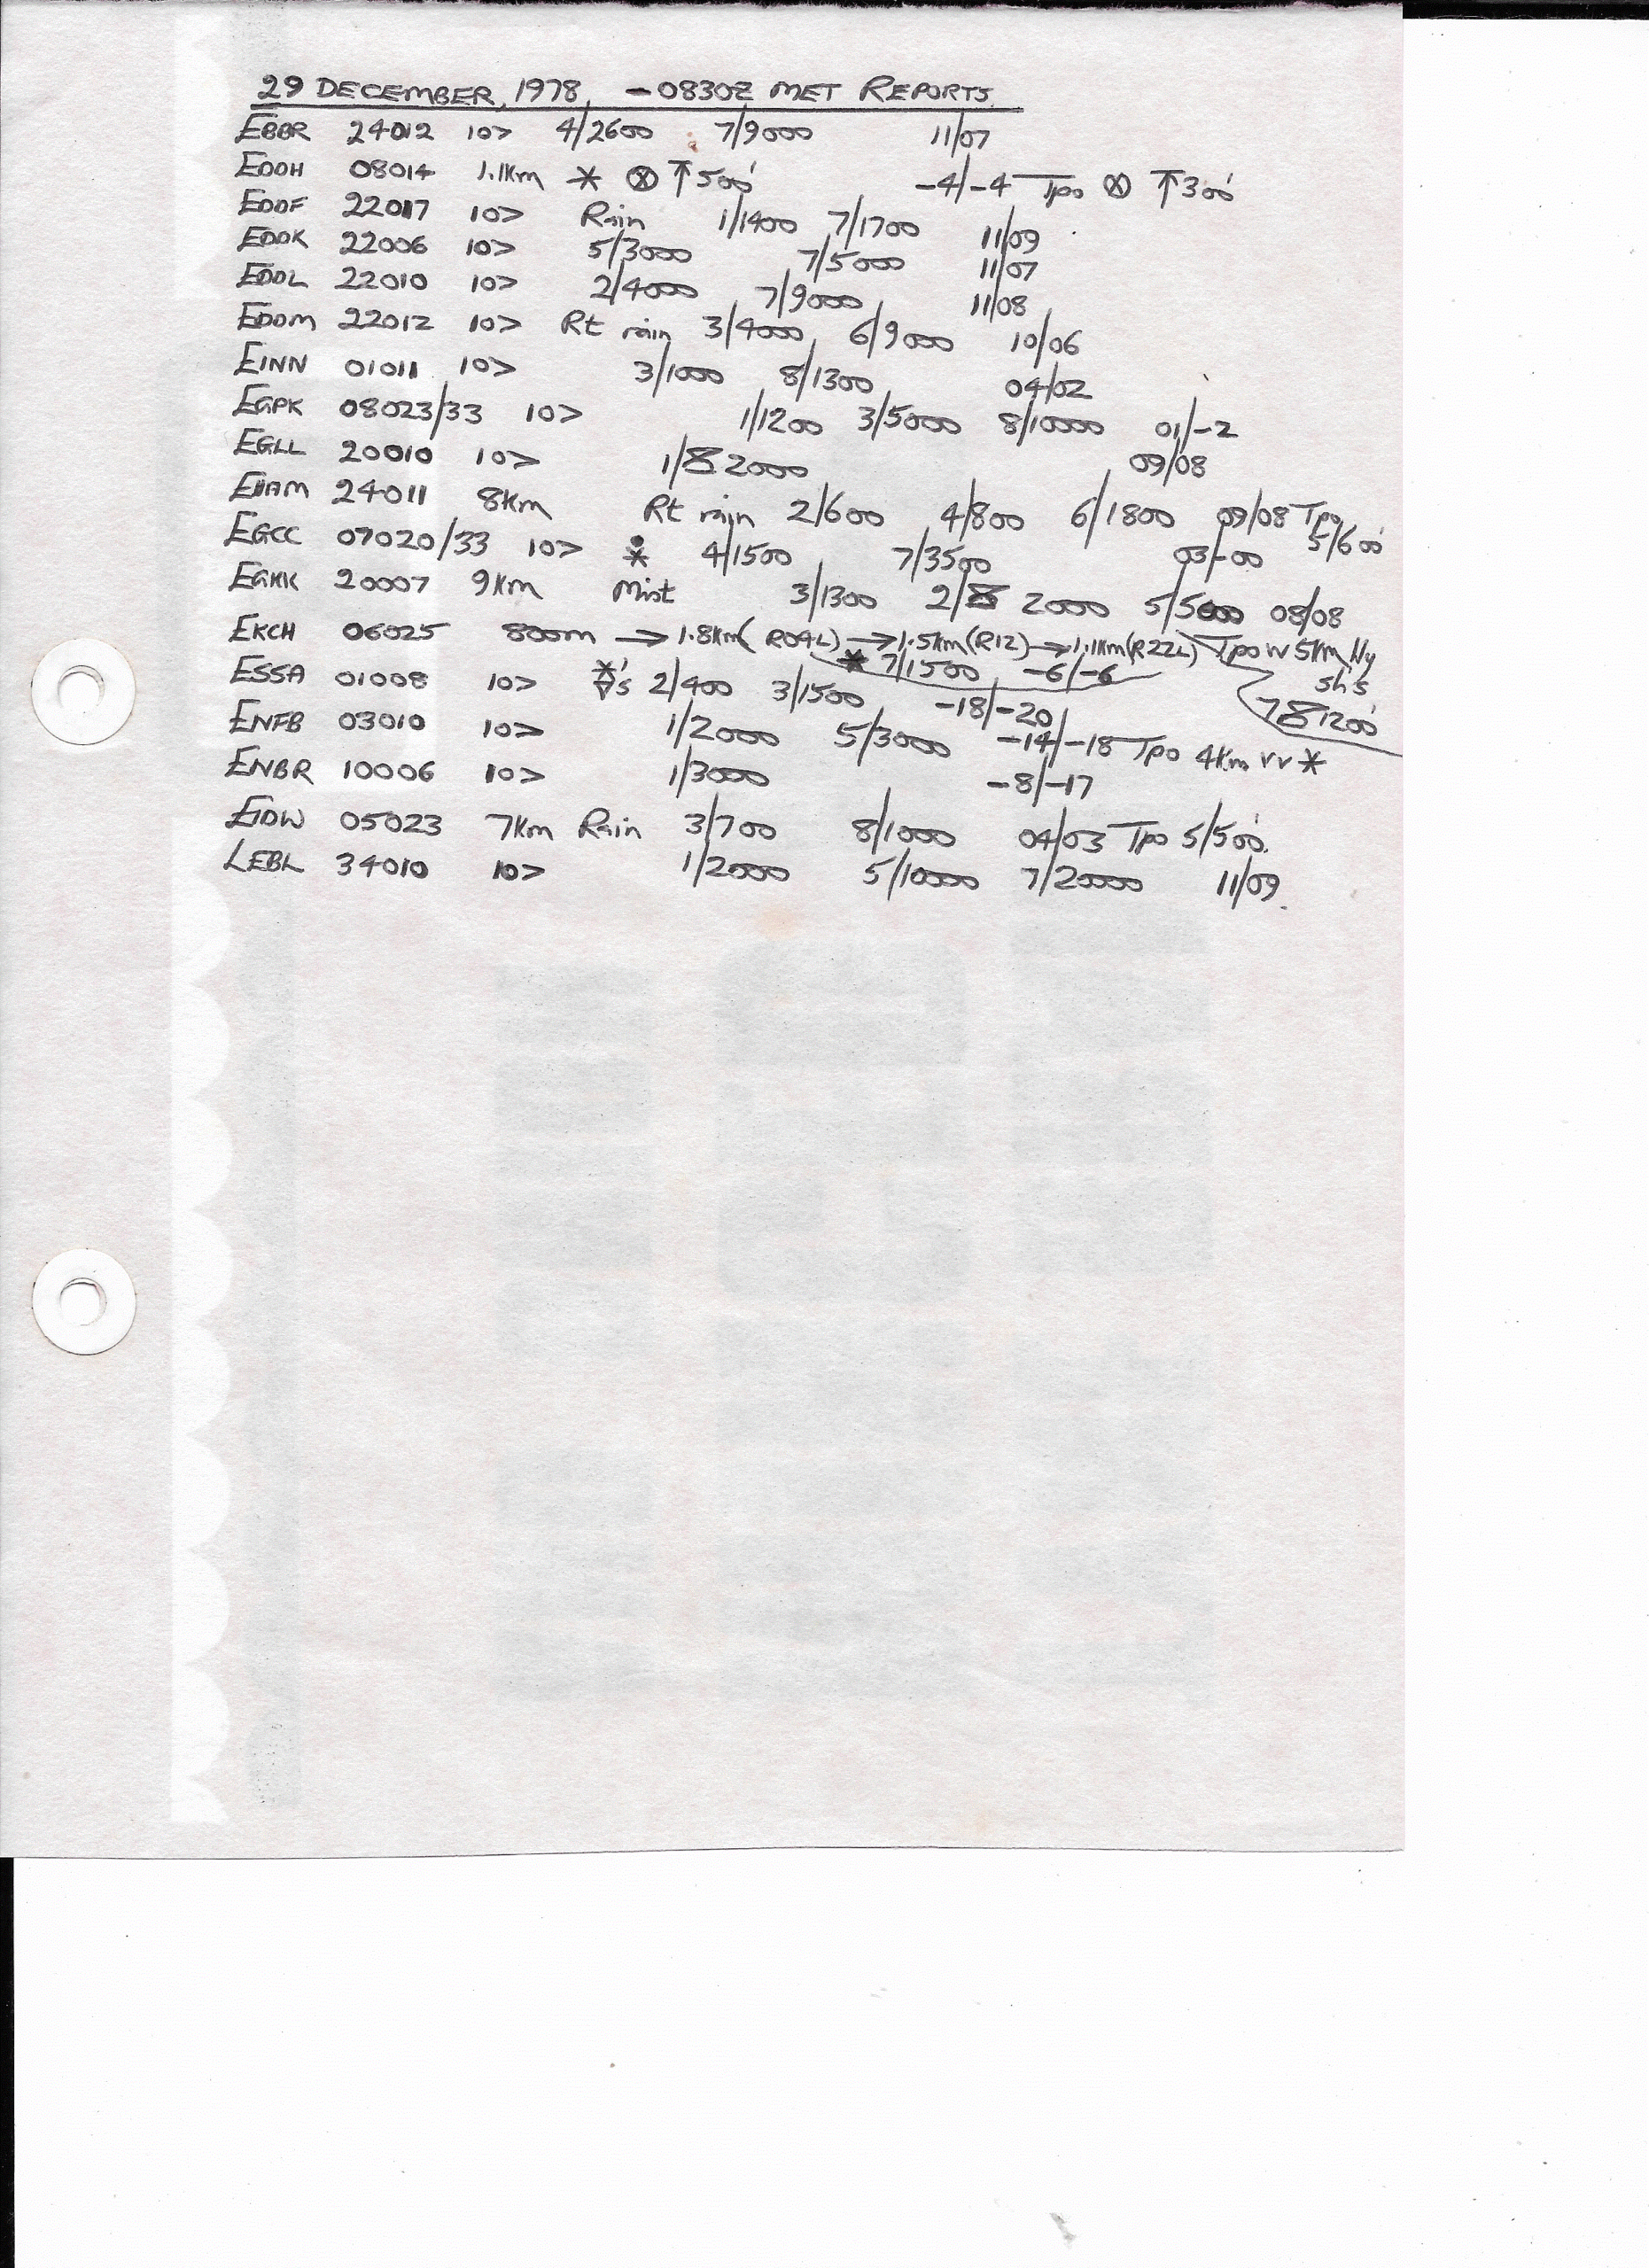 29 DECEMBER, 1978, - 0830Z MET REPORTS
EBBR 24012 10> 4/2600 7/9000 11/07
EDDH 08014 1.1Km * ⊗ ↑500' -4/-4 Tpo ⊗ ↑300'
EDDF 22017 10> Rain 1/1400 7/1700 11/09
EDDK 22006 10> 5/3000 7/5000 11/07
EDDL 22010 10> 2/4000 7/9000 11/08
EDDM 22012 10> Rt rain 3/4000 6/9000 10/06
EINN 01011 10> 3/1000 8/1300 04/02
EGPK 08023/33 10> 1/1200 3/5000 8/10000 01/-2
EGLL 20010 10> 1/8 2000 09/08
EHAM 24011 8Km Rt rain 2/600 4/800 6/1800 09/08 Tpo 5/600'
EGCC 07020/33 10> * 4/1500 7/3500 03/-00
EGKK 20007 9Km Mist 3/1300 2/8 2000 5/5000 08/08
EKCH 06025 800m → 1.8Km (R04L) → 1.5Km (R12) → 1.1Km (R22L) Tpo 5Km Hy sh's
* 7/1500 -6/-6 1200'
ESSA 01008 10> *▽'s 2/400 3/1500 -18/-20
ENFB 03010 10> 1/2000 5/3000 -14/-18 Tpo 4Km vv *
ENBR 10006 10> 1/3000 -8/-17
EIDW 05023 7Km Rain 3/700 8/1000 04/03 Tpo 5/500'.
LEBL 34010 10> 1/2000 5/10000 7/20000 11/09.